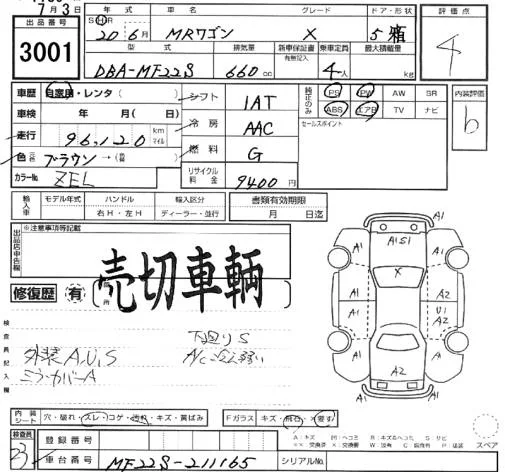 月 3日
出品番号
3001
年式 車名 グレード ドア・形状 評価点
S H
20年6月 MRワゴン X 5 箱 4
型式 排気量 新車保証書 乗車定員 最大積載量
有無記入
DBA-MF22S 660cc 4人 kg
車歴 自家用・レンタ( ) シフト 1AT
車検 年 月( 日) 冷房 AAC
走行 96,120 km マイル 燃料 G
色 ブラウン→( )
リサイクル料金 9400円
カラーNo. ZEL
純正のみ PS PW AW SR
ABS エアB TV ナビ
セールスポイント
内装評価
b
輸入車 モデル年式 ハンドル 輸入区分 書類有効期限
年 右H・左H ディーラー・並行 月 日迄
出品店申告欄
※注意事項等記載
売切車輌
修復歴 有
検査員記入欄
下廻りS
外装A,U,S
ミラーカバーA
A1 A1 A1
A1S1
A1 X A2
A1 U1 A2
A1 A2 A1
A1
内装シート 穴・破れ・スレ・コゲ・汚れ・キズ・黄ばみ Fガラス キズ・飛石・×(要す)
スペア
検査員
23
登録番号
車台番号 MF22S-211165 シリアルNo.